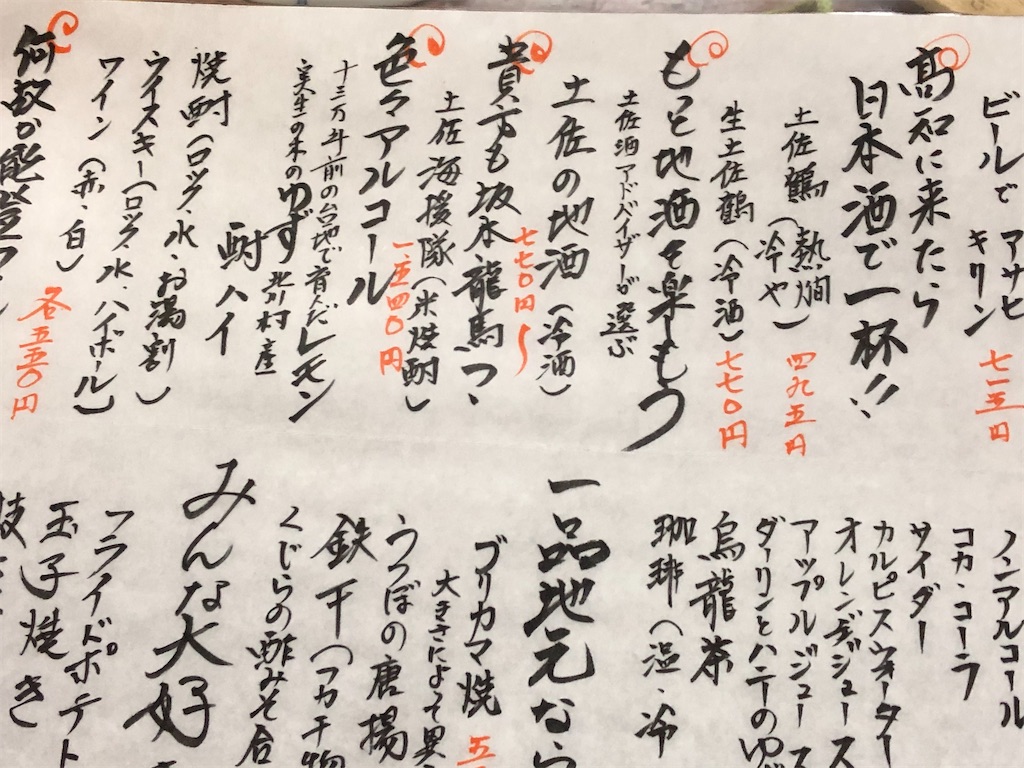 ビールで アサヒ
キリン 七一五円
高知に来たら
日本酒で一杯!!
土佐鶴(熱燗
冷や) 四九五円
生土佐鶴(冷酒) 七七〇円
もっと地酒を楽しもう
土佐酒アドバイザーが選ぶ
土佐の地酒(冷酒)
七七〇円〜
貴方も坂本龍馬っ、
土佐海援隊(米焼酎)
色々アルコール
十三万斗前の台地で育んだレモン
実生の木のゆず 北川村産
酎ハイ
焼酎(ロック・水・お湯割)
ウイスキー(ロック・水・ハイボール)
ワイン(赤・白)
各五五〇円
何故か能登
ノンアルコール
コカ・コーラ
サイダー
カルピスウォーター
オレンジジュース
アップルジュース
ダーリンとハニーのゆ
烏龍茶
珈琲(温・冷
一品地元なら
ブリカマ焼
大きさによって異
うつぼの唐揚
鉄干(フカ干物
くじらの酢みそ合
みんな大好
フライドポテト
玉子焼き